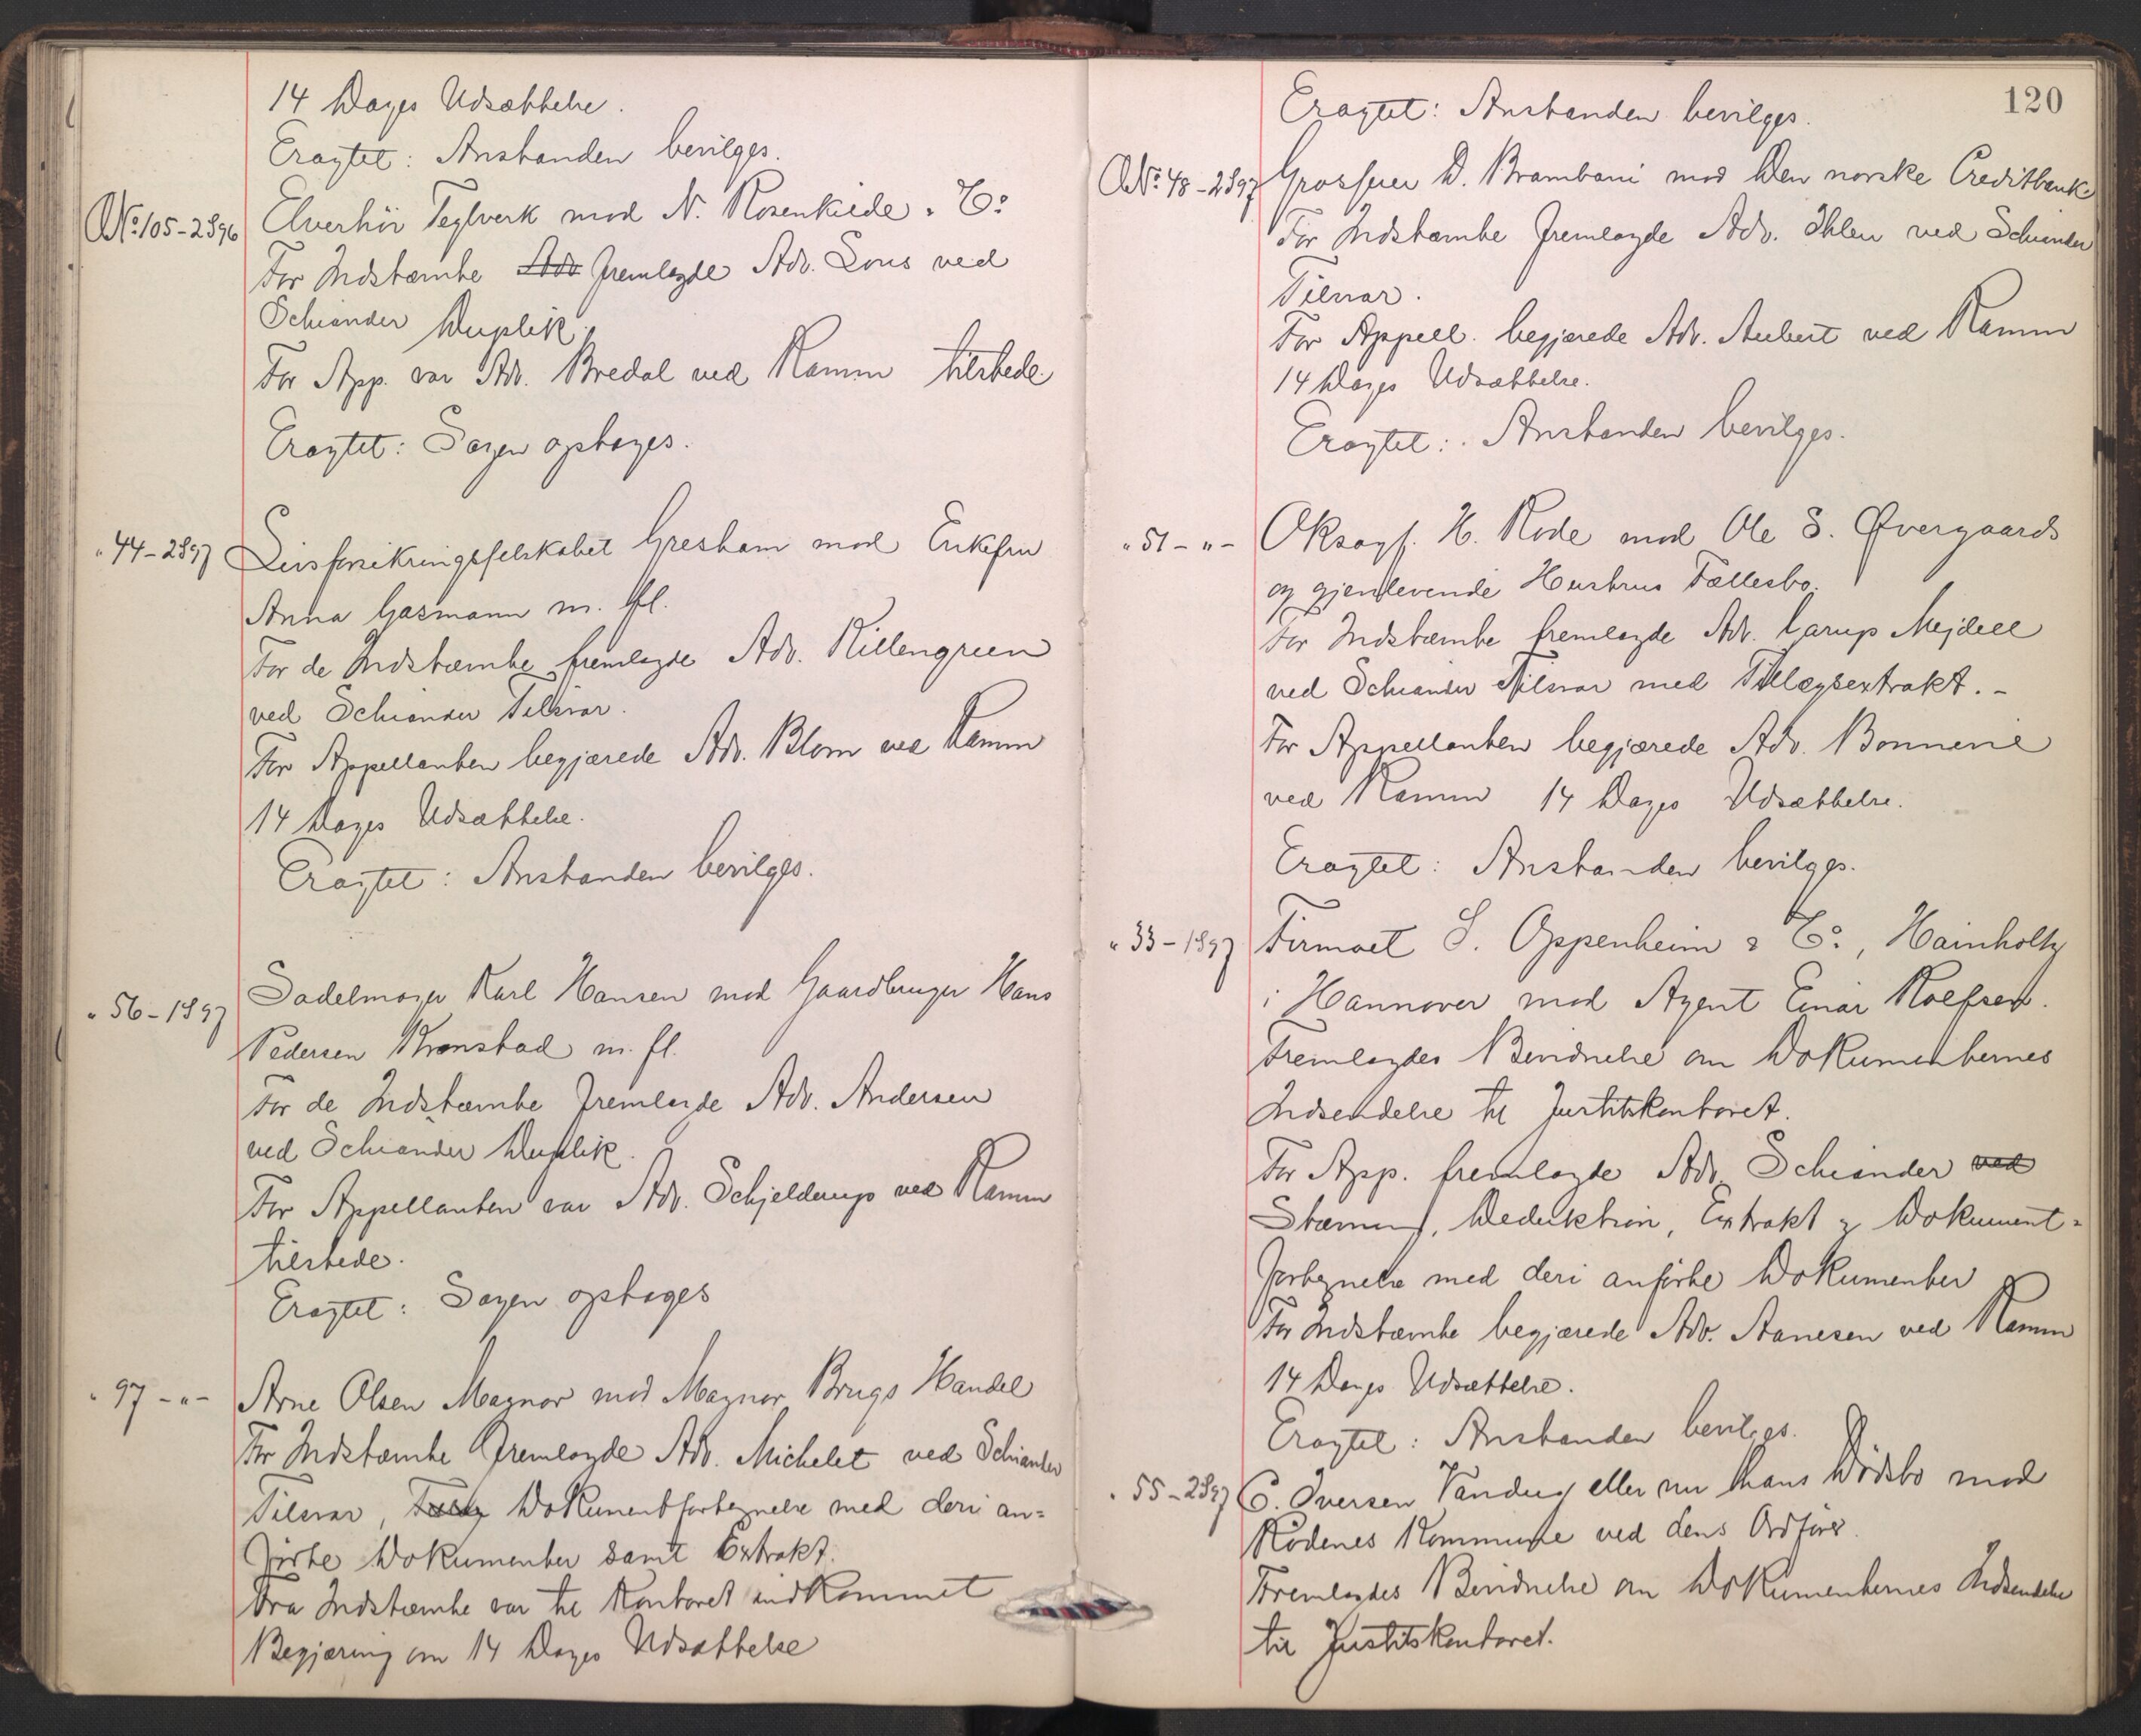 14 Dages Udsættelse.
Eragtet: Anstanden bevilges.
No. 105-2896 Elverhöi Teglverk mod N. Rosenkilde & Co.
For Indstævnte Adv fremlagde Adv. Lous ved
Schiander Duplik.
For App. var Adv. Bredal ved Ramm tilstede.
Eragtet: Sagen optages.
" 44-2897 Livsforsikringsselskabet Gresham mod Enkefru
Anna Gasmann m. fl.
For de Indstævnte fremlagde Adv. Killengreen
ved Schiander Tilsvar.
For Appellanten begjærede Adv. Blom ved Ramm
14 Dages Udsættelse.
Eragtet: Anstanden bevilges.
" 56-1897 Sadelmager Karl Hansen mod Gaardbruger Hans
Pedersen Kronstad m. fl.
For de Indstævnte fremlagde Adv. Andersen
ved Schiander Duplik.
For Appellanten var Adv. Schjelderup ved Ramm
tilstede.
Eragtet: Sagen optages
" 97-"- Arne Olsen Magnor mod Magnor Brugs Handel
For Indstævnte fremlagde Adv. Michelet ved Schiander
Tilsvar, Dokumentfortegnelse med deri an=
førte Dokumenter samt Extrakt.
Fra Indstævnte var til Kontoret indkommet
Begjæring om 14 Dages Udsættelse
120
Eragtet: Anstanden bevilges.
No. 48-2897 Grosserer D. Brambani mod Den norske Creditbank
For Indstævnte fremlagde Adv. Ihlen ved Schiander
Tilsvar.
For Appell. begjærede Adv. Aubert ved Ramm
14 Dages Udsættelse.
Eragtet: Anstanden bevilges.
" 51-"- Oksagf. H. Rode mod Ole S. Øvergaards
og gjenlevende Hustrus Fællesbo.
For Indstævnte fremlagde Adv. Carup Mejdell
ved Schiander Tilsvar med Tillægsextrakt. -
For Appellanten begjærede Adv. Bonnevie
ved Ramm 14 Dages Udsættelse.
Eragtet: Anstanden bevilges.
" 33-1897 Firmaet S. Oppenheim & Co., Hainholtz
i Hannover mod Agent Einar Roefsen.
Fremlagdes Bevidnelse om Dokumenternes
Indsendelse til Justitskontoret.
For App. fremlagde Adv. Schiander ved
Stævning, Deduktion, Extrakt & Dokument=
fortegnelse med deri anførte Dokumenter
For Indstævnte begjærede Adv. Aanesen ved Ramm
14 Dages Udsættelse.
Eragtet: Anstanden bevilges.
" 55-2897 C. Iversen Vandug eller nu hans Dödsbo mod
Rödenes Kommune ved dens Ordfører.
Fremlagdes Bevidnelse om Dokumenternes Indsendelse
til Justitskontoret.